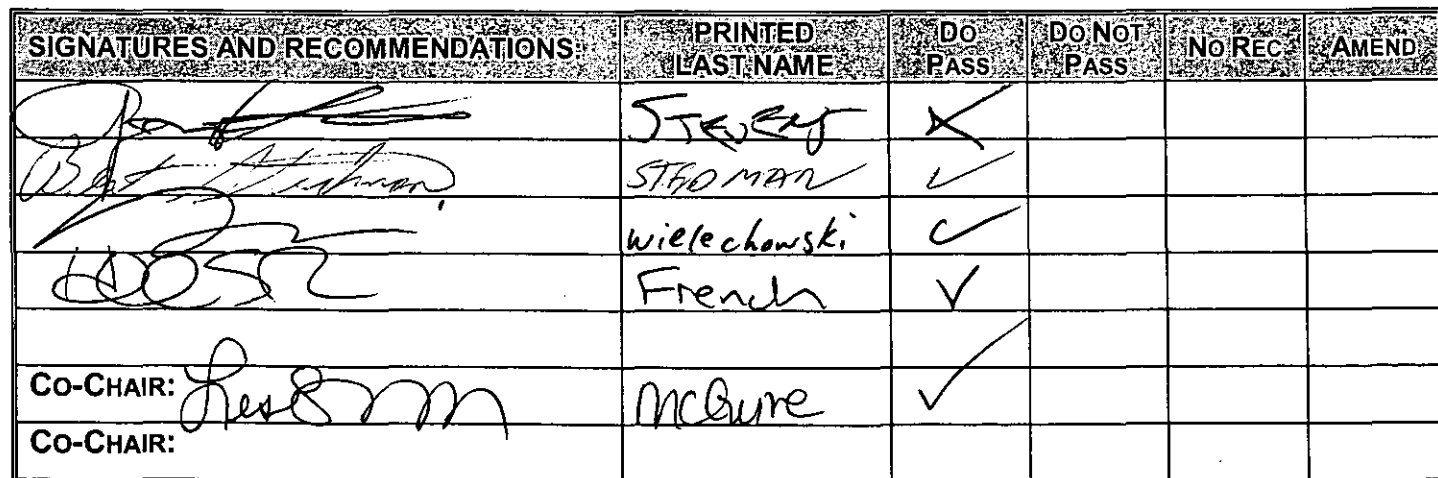 SIGNATURES AND RECOMMENDATIONS: PRINTED LAST NAME DO PASS DO NOT PASS NO REC AMEND
STEVENS X
STEDMAN ✓
wielechowski ✓
French ✓
CO-CHAIR: McGuire ✓
CO-CHAIR: